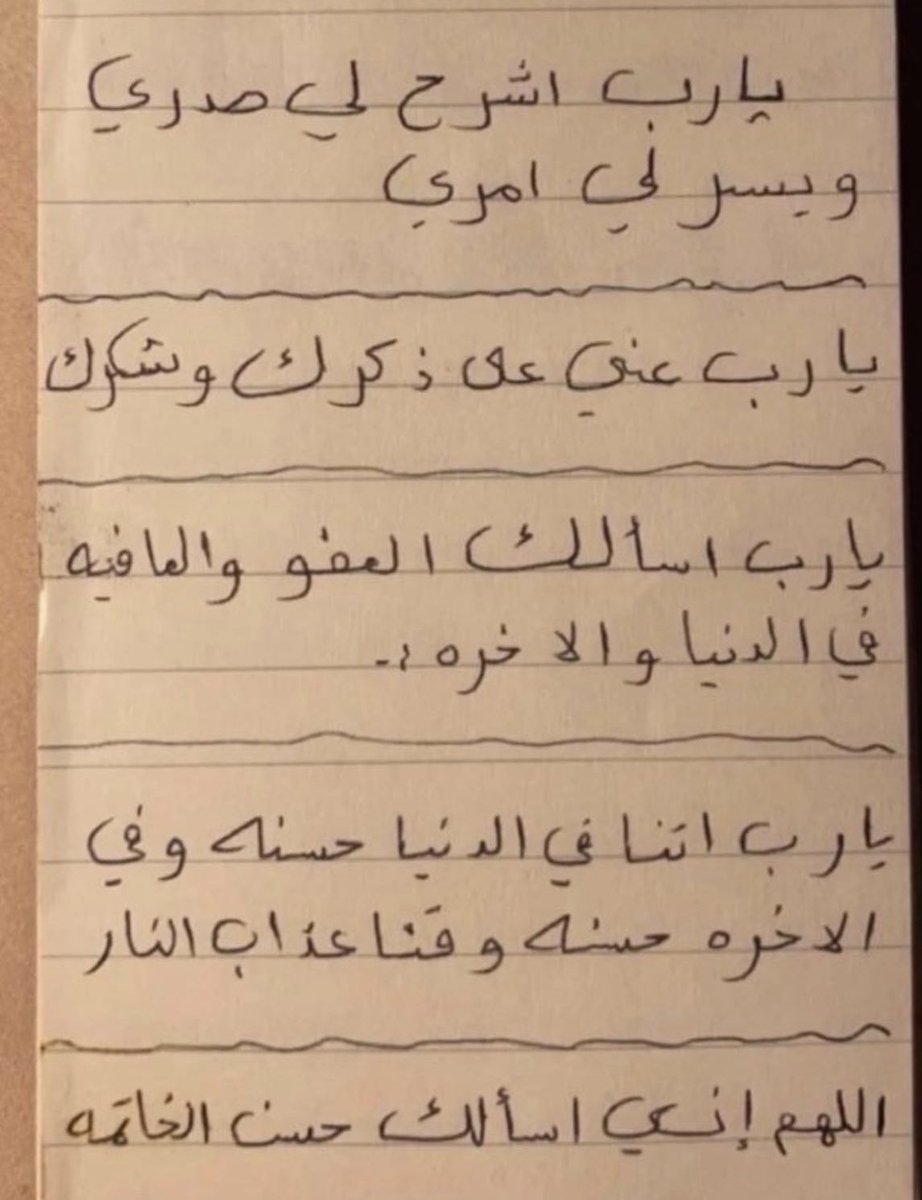 يارب اشرح لي صدري
ويسر لي امري
يارب عني على ذكرك وشكرك
يارب اسألك العفو والعافيه
في الدنيا والاخره :.
يارب اتنا في الدنيا حسنه وفي
الاخره حسنه وقنا عذاب النار
اللهم إني اسألك حسن الخاتمه